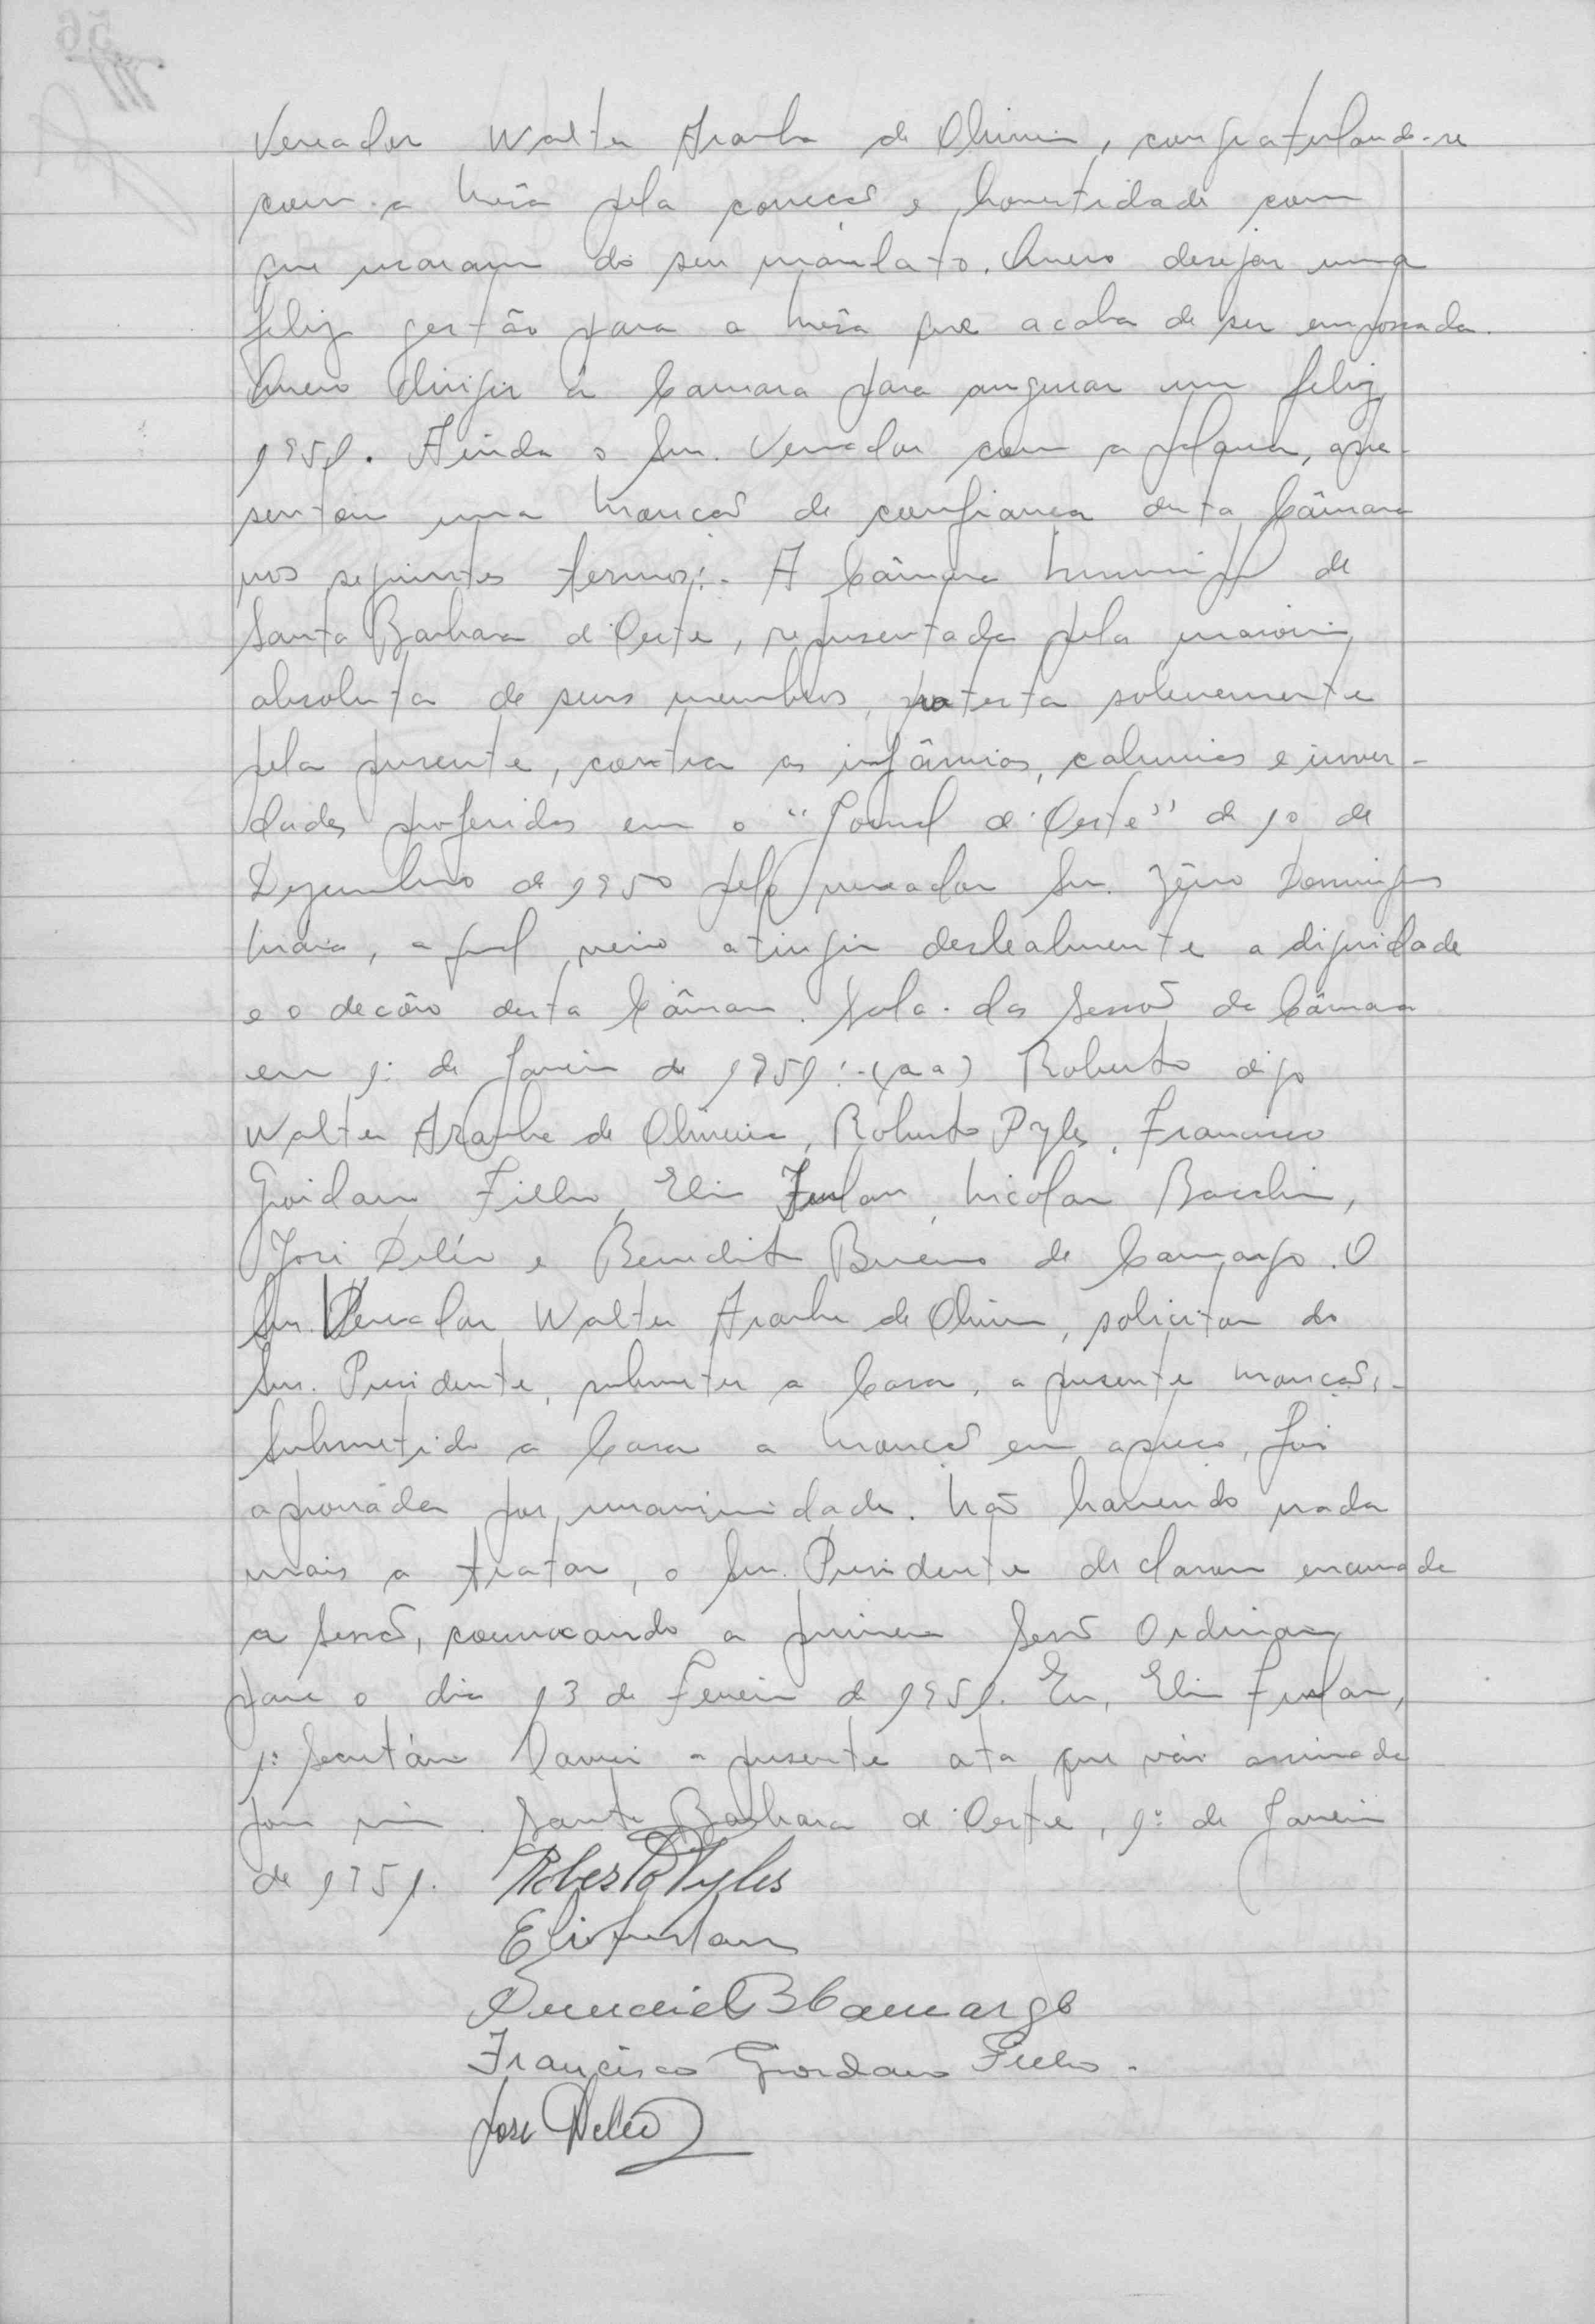 Vereador Walter Aranha de Oliveira, congratulando-se
com a Mêsa pela correcão e honestidade com
que usaram do seu mandato. Quero desejar uma
feliz gestão para a mêsa que acaba de ser empossada.
Quero dirigir à Camara para augurar um feliz
1951. Ainda o Snr. Vereador com a palavra, apre-
sentou uma moncão de confianca desta Câmara
nos seguintes termos:- A Câmara Municipal de
Santa Barbara d'Oeste, representada pela maioria
absoluta de seus membros, protesta solenemente
pela presente, contra as infâmias, calunias e inver-
dades proferidas em o "Jornal d'Oeste" de 1º de
Dezembro de 1950 pelo vereador Snr. Zêno Domingues
Maia, a qual veio atingir deslealmente a dignidade
e o decôro desta Câmara. Sala das Sessões da Câmara
em 1º de Janeiro de 1951:-(aa) Roberto digo
Walter Aranha de Oliveira, Roberto Pyles, Francisco
Giordano Filho, Elio Furlan, Nicolau Bacchin,
José Deléo e Benedito Bueno de Camargo. O
Snr. Vereador Walter Aranha de Oliveira, solicitou do
Snr. Presidente, submeter a Casa, a presente moncão.-
Submetido a Casa a moncão em apreco, foi
aprovada por unanimidade. Não havendo nada
mais a tratar, o Snr. Presidente declarou encerrada
a Sessão, convocando a primeira Sessão Ordinaria
para o dia 13 de Fevereiro de 1951. Eu, Elio Furlan,
1º Secretário lavrei a presente ata que vai assinada
por mim. Santa Barbara d'Oeste, 1º de Janeiro
de 1951. Roberto Pyles
Elio Furlan
Benedicto B Camargo
Francisco Giordano Filho.
José Deleo